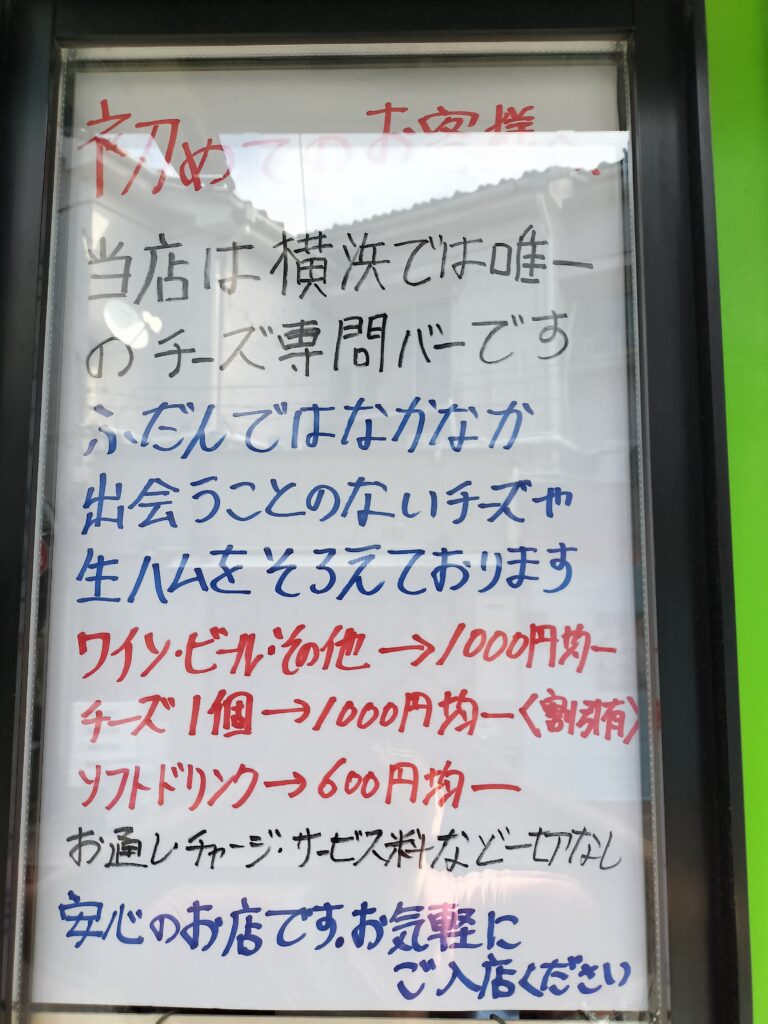 初めてのお客様へ
当店は横浜では唯一
のチーズ専問バーです
ふだんではなかなか
出会うことのないチーズや
生ハムをそろえております
ワイン・ビール・その他→1000円均一
チーズ1個→1000円均一〈割引有〉
ソフトドリンク→600円均一
お通し・チャージ・サービス料など一切なし
安心のお店です。お気軽に
ご入店ください